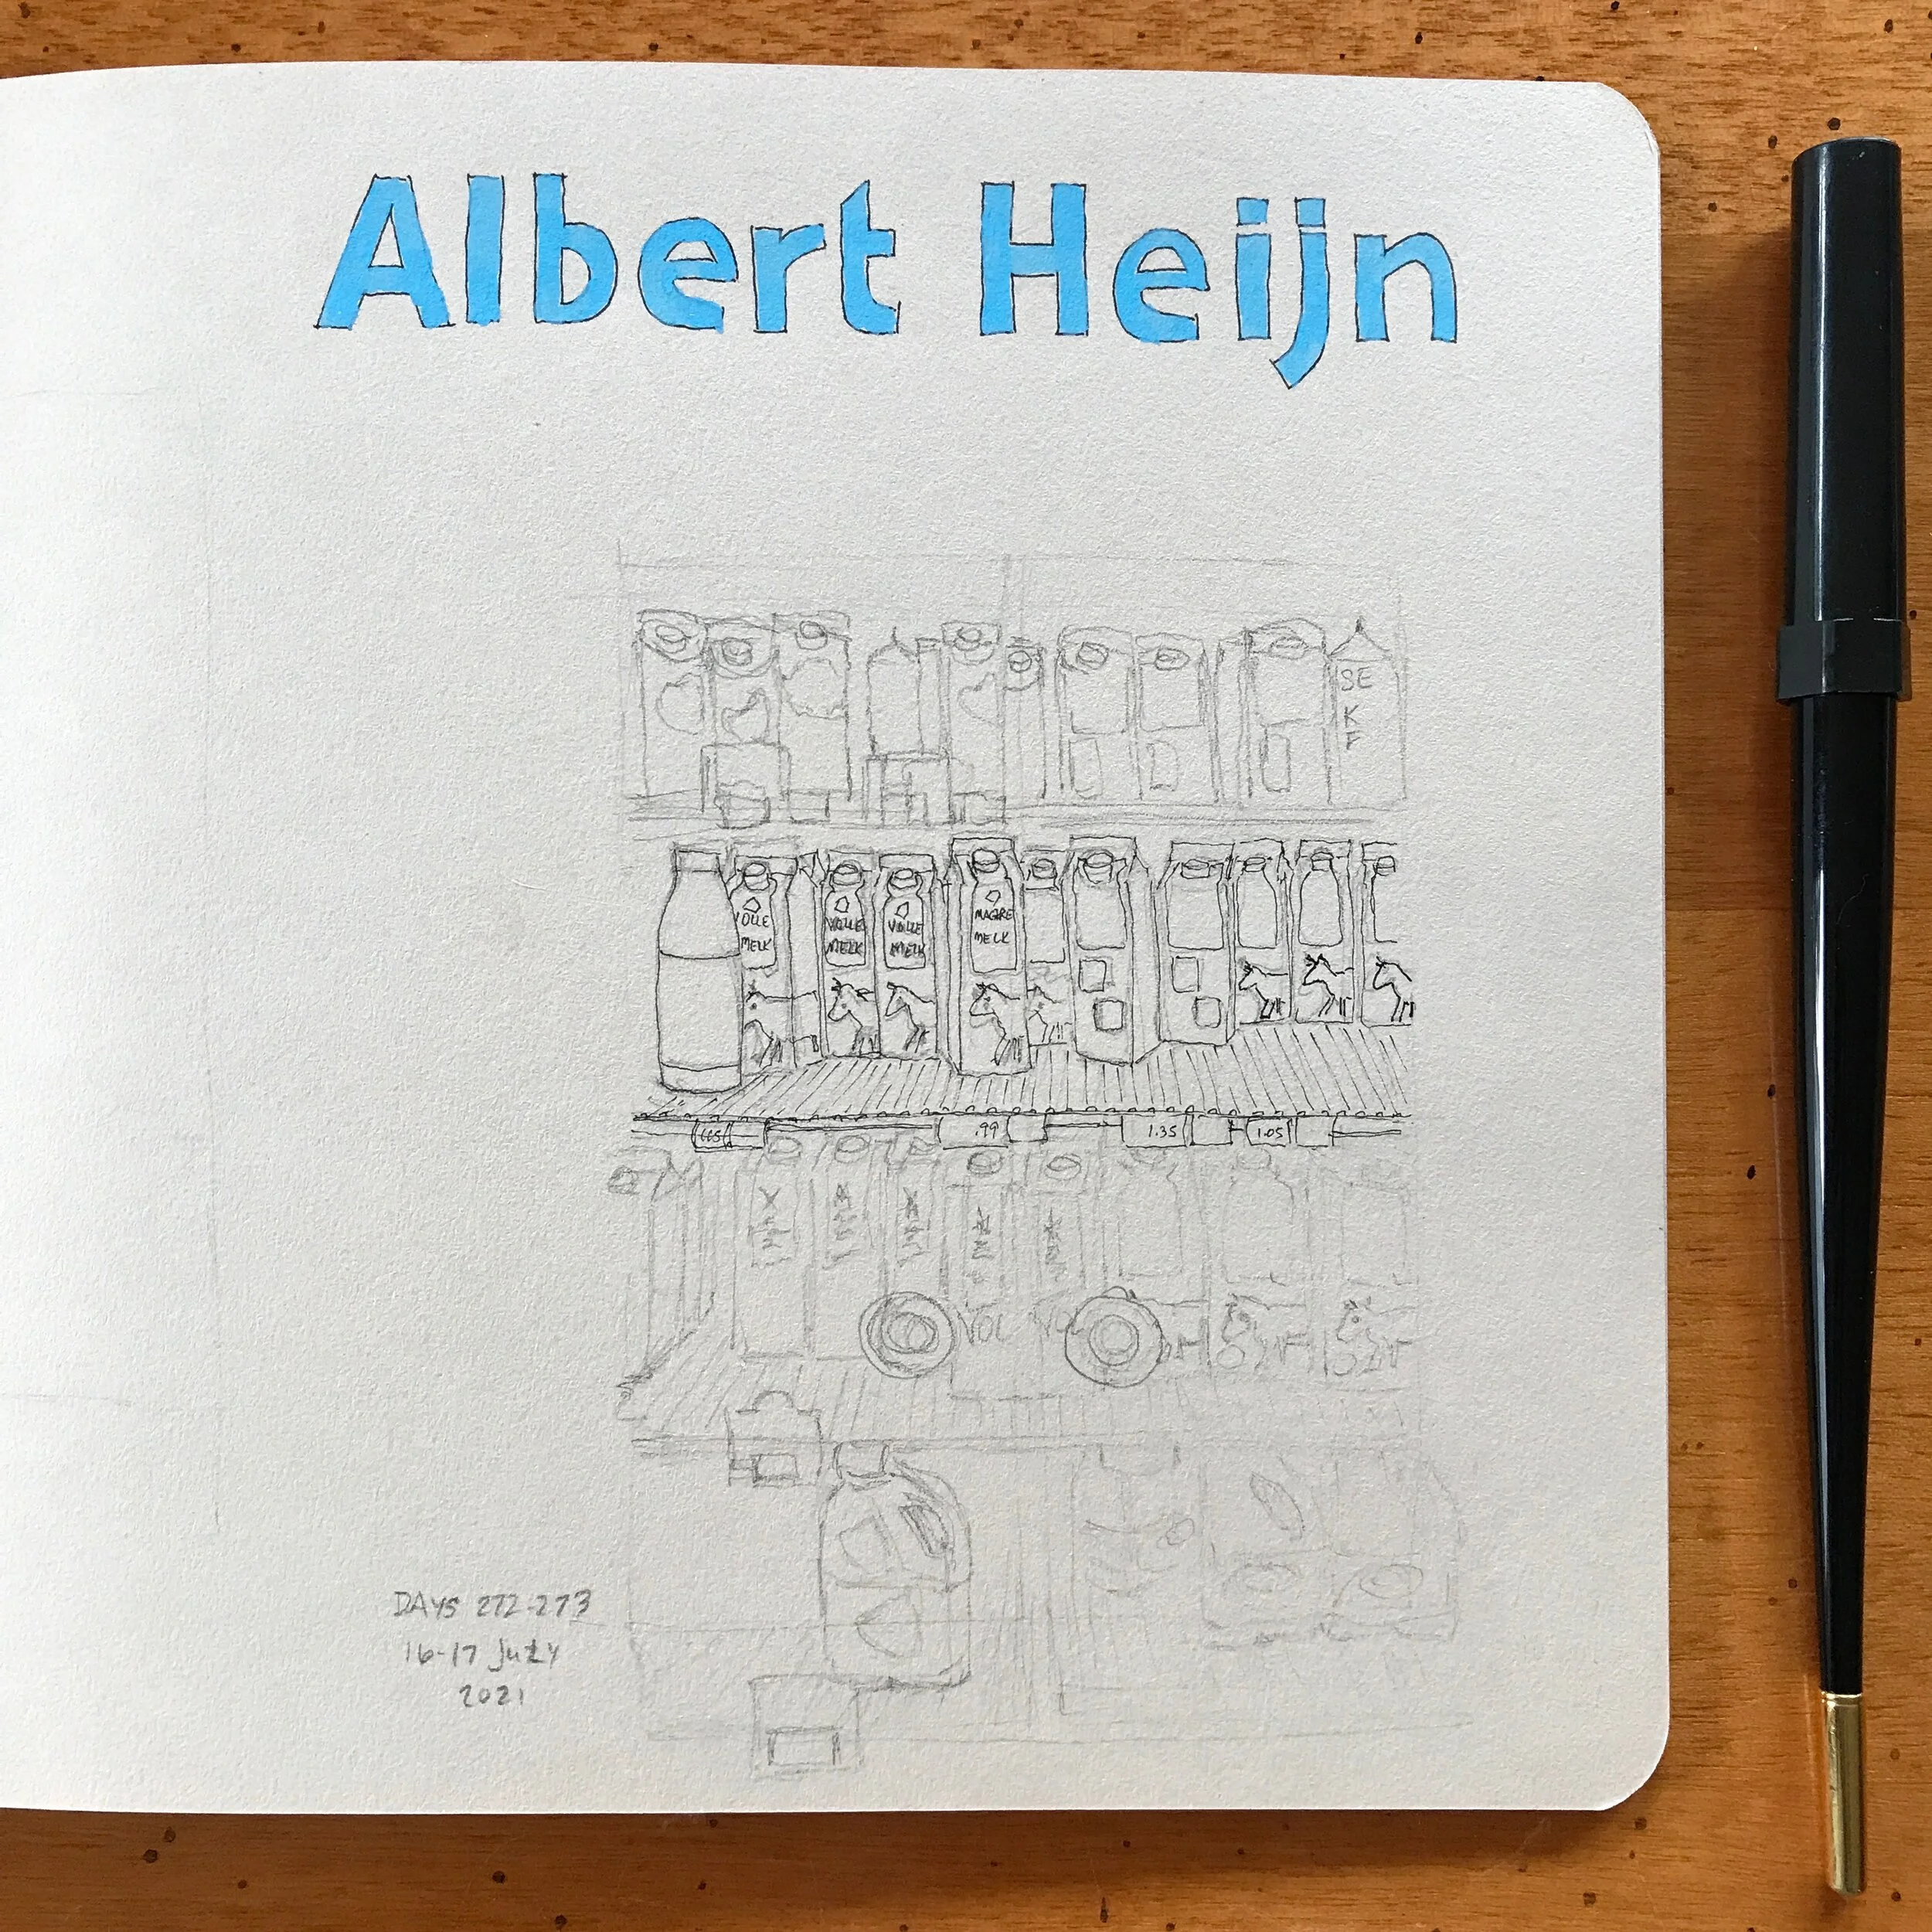 Albert Heijn
SE
K
F
VOLLE
MELK
VOLLE
MELK
VOLLE
MELK
MAGRE
MELK
.99
1.35
1.05
VOL VO
DAYS 272-273
16-17 JULY
2021